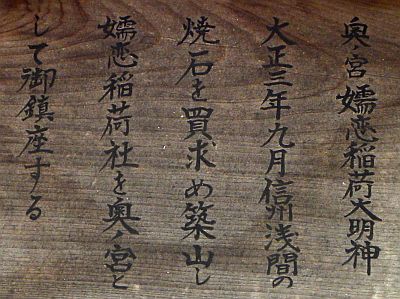 奥ノ宮嬬恋稲荷大明神
大正三年九月信州浅間の
焼石を買求め築山し
嬬恋稲荷社を奥ノ宮と
して御鎮座する